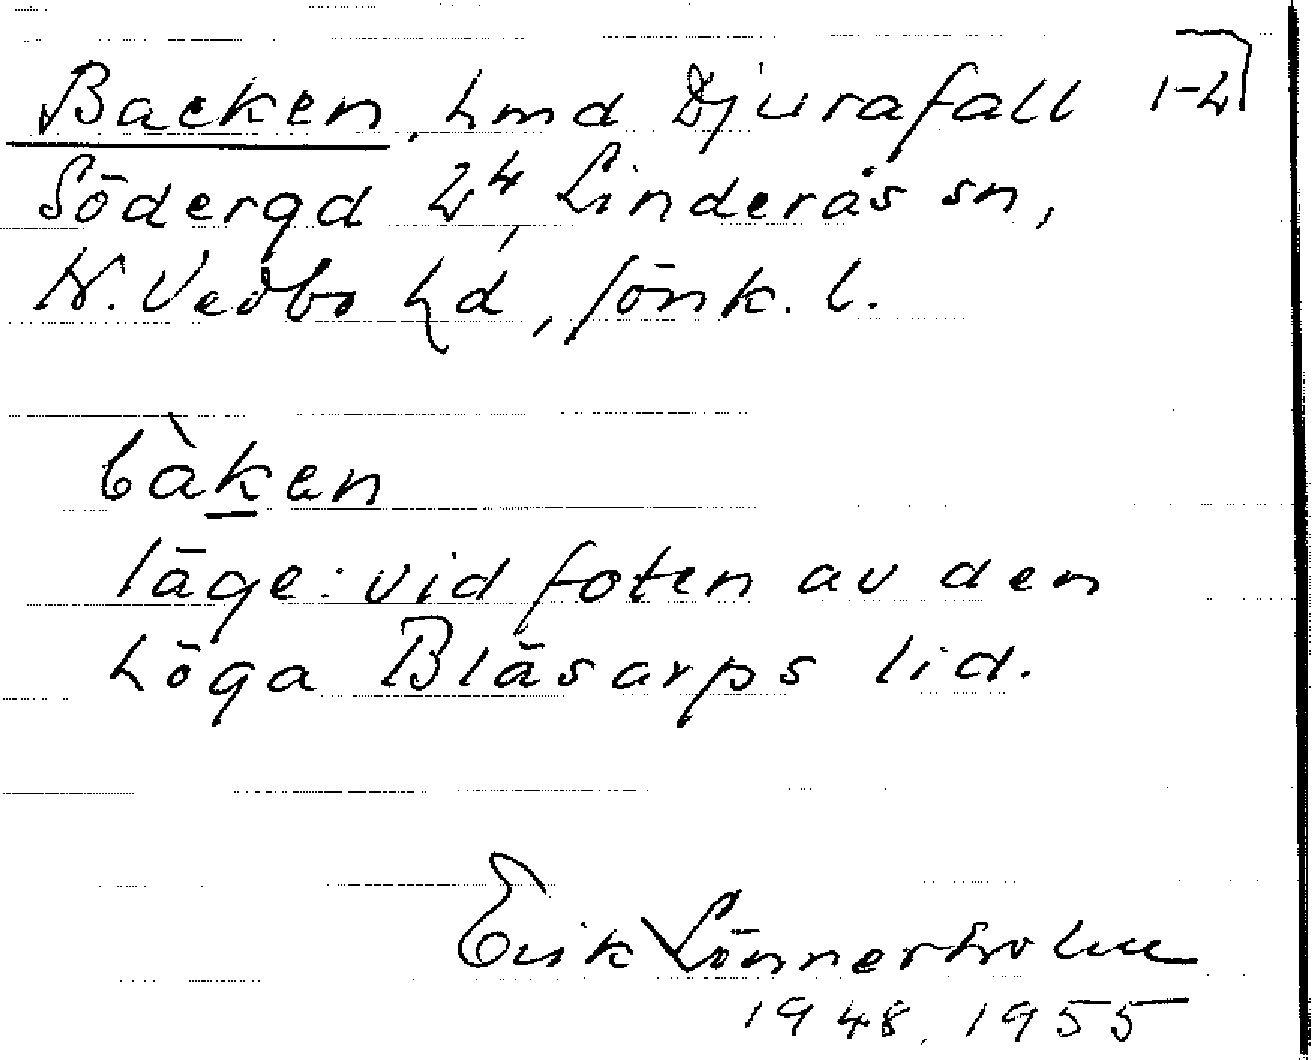 Backen, hmd Djurafall
Södergd 2⁴, Linderås sn,
N. Vedbo hd, Jönk. l.
bàken
läge: vid foten av den
höga Blåsarps lid.
Erik Lönnerholm
1948, 1955